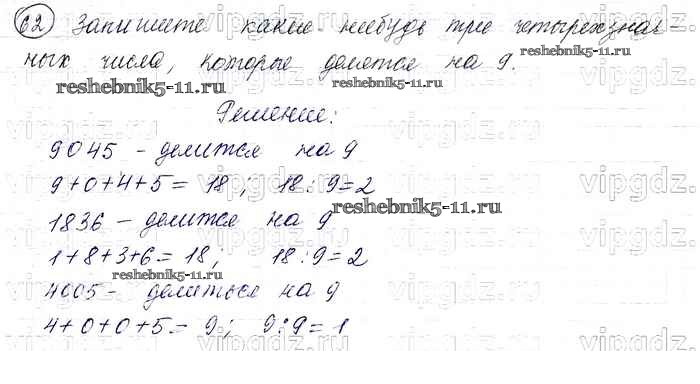 62 Запишите какие-нибудь три четырехзнач
ных числа, которые делятся на 9.
reshebnik5-11.ru
Решение:
9045 - делится на 9
9+0+4+5= 18; 18:9=2
reshebnik5-11.ru
1836 - делится на 9
1+8+3+6= 18; 18:9=2
reshebnik5-11.ru
4005- делиться на 9
4+0+0+5= 9; 9:9=1
vipgdz.ru